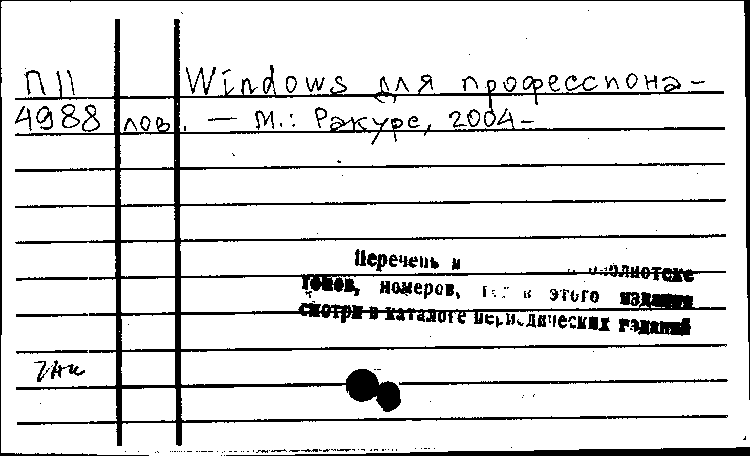 П11 Windows для профессиона-
4988 лов. — М.: Ракурс, 2004-
Перечень и библиотеке
томов, номеров, этого издания
смотри в каталоге периодических изданий